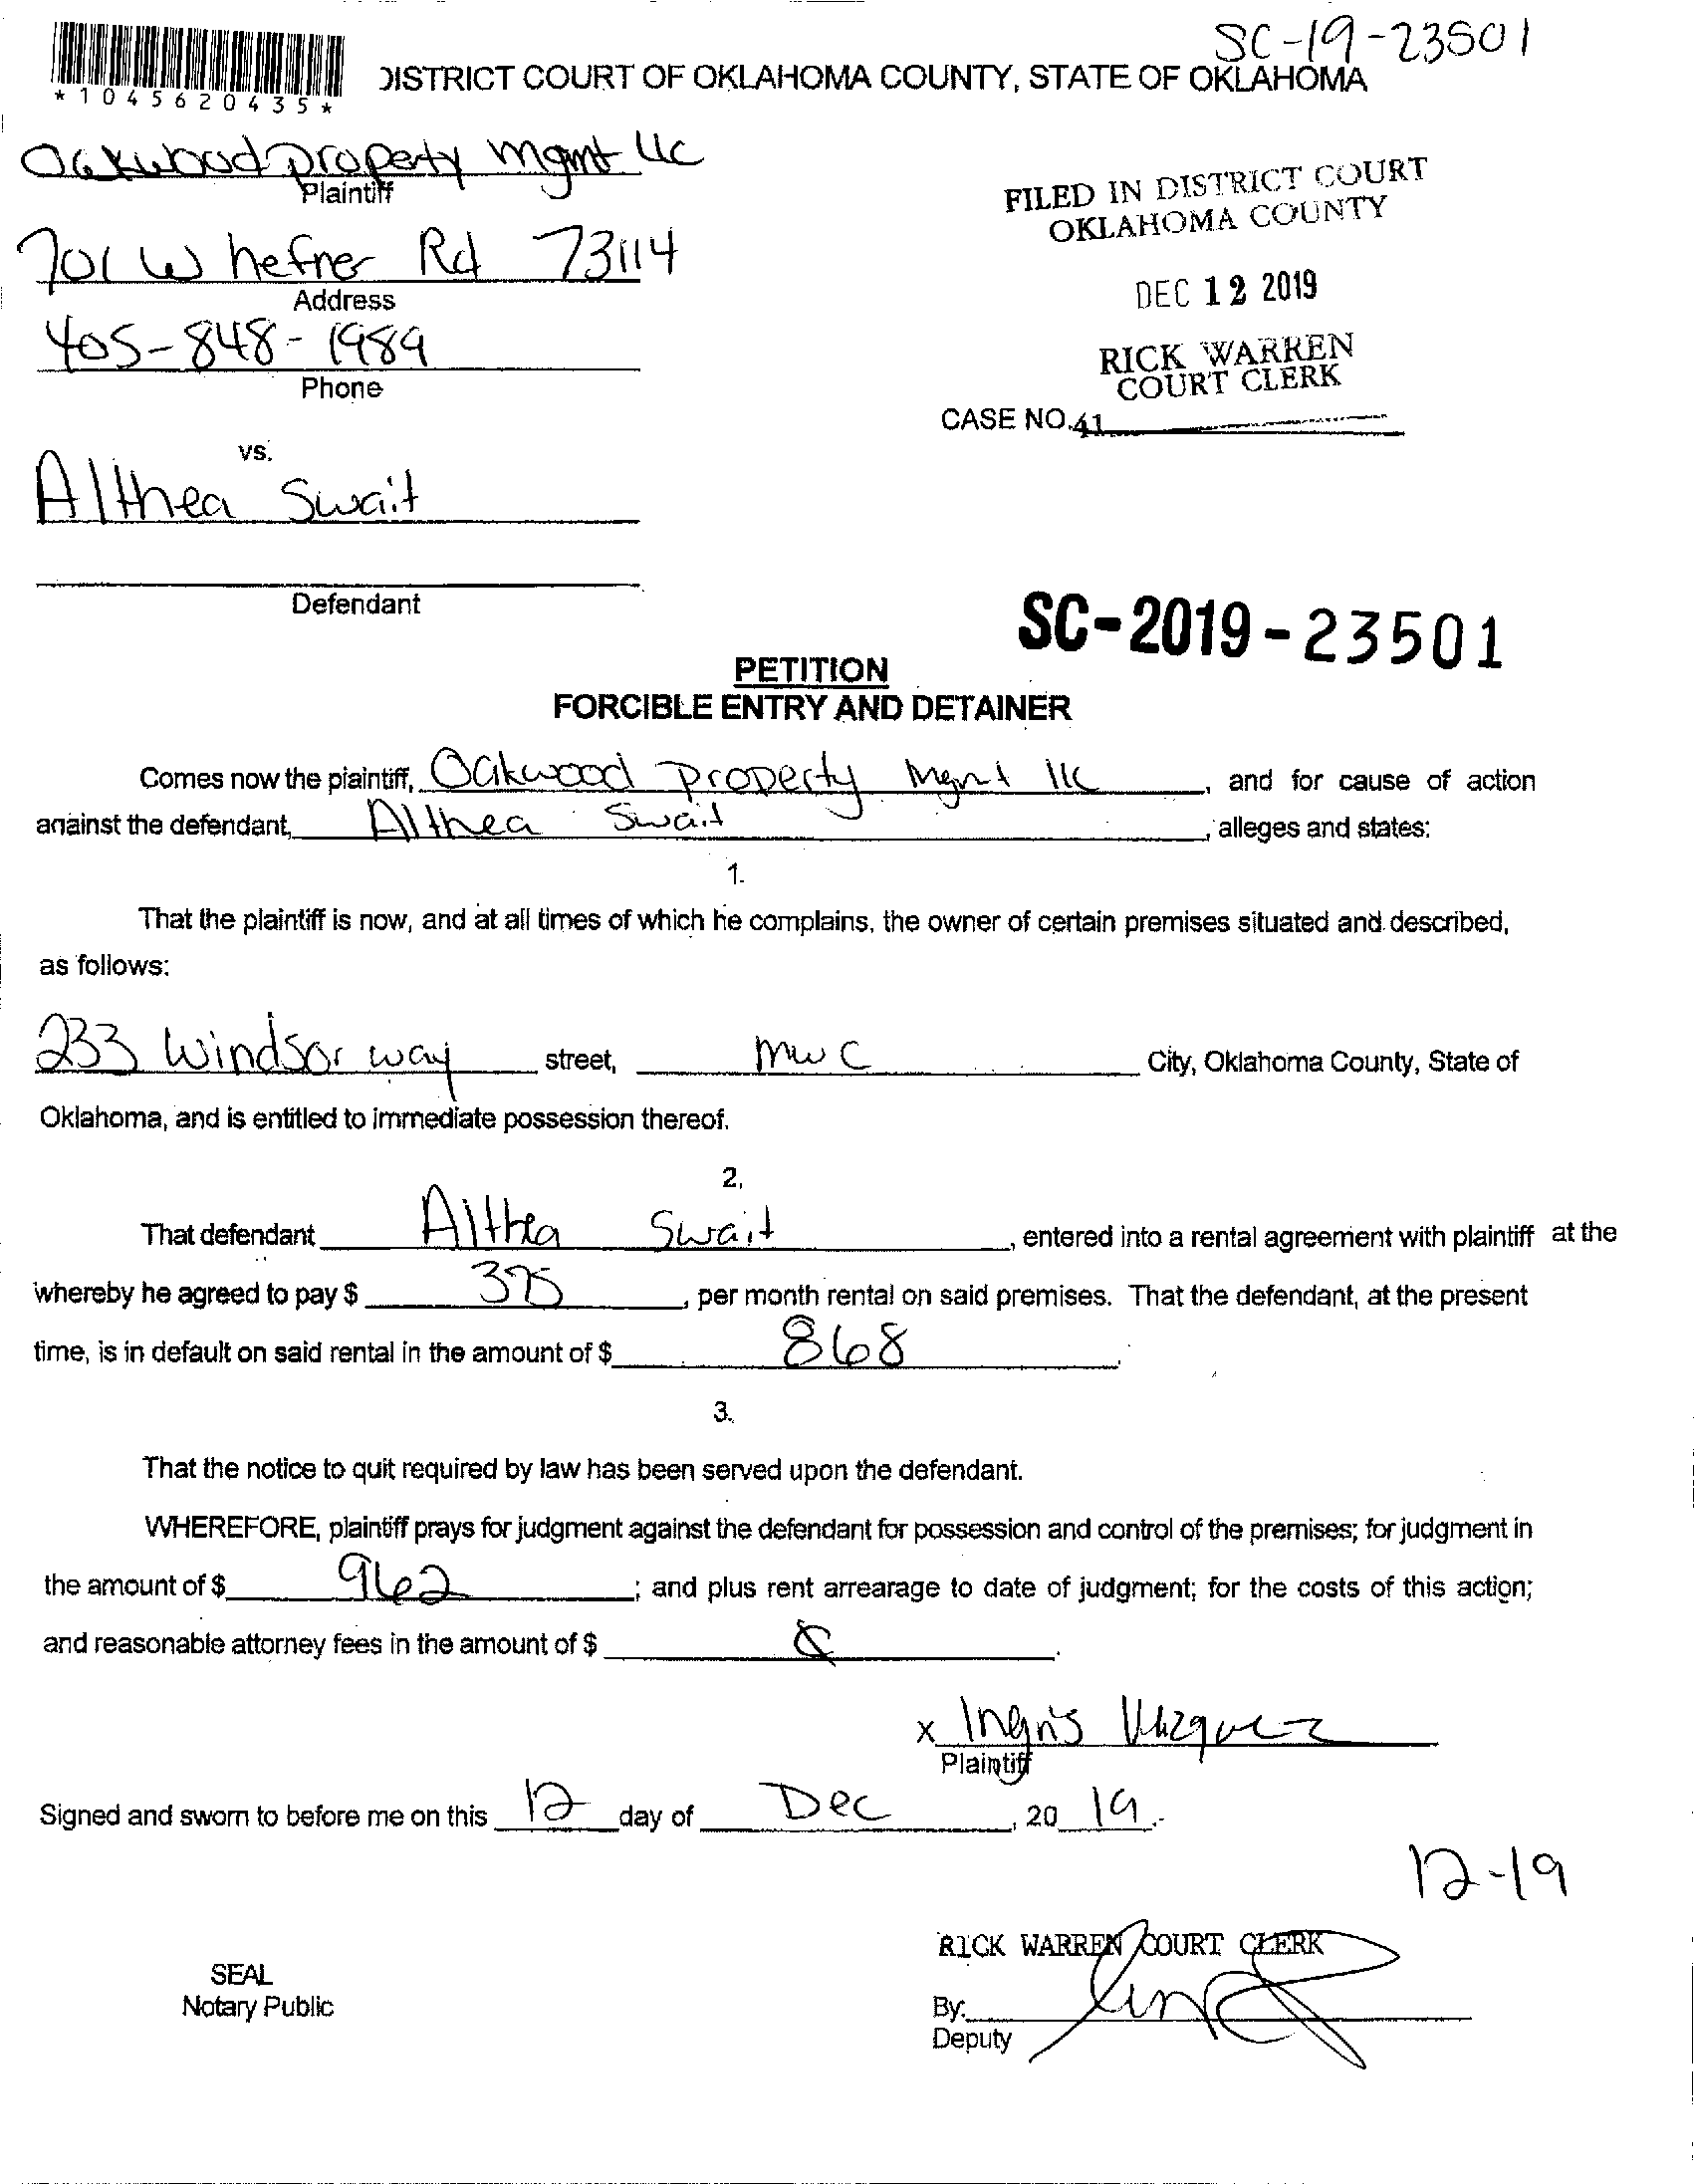 SC-19-23501
*1045620435*
DISTRICT COURT OF OKLAHOMA COUNTY, STATE OF OKLAHOMA
Oakwood property mgmt llc
Plaintiff
701 W hefner Rd 73114
Address
405-848-1989
Phone
FILED IN DISTRICT COURT
OKLAHOMA COUNTY
DEC 12 2019
RICK WARREN
COURT CLERK
CASE NO. 41
vs.
Althea Swait
Defendant
SC-2019-23501
PETITION
FORCIBLE ENTRY AND DETAINER
Comes now the plaintiff, Oakwood property Mgmt llc, and for cause of action
against the defendant, Althea Swait, alleges and states:
1.
That the plaintiff is now, and at all times of which he complains, the owner of certain premises situated and described,
as follows:
233 Windsor way street, mwc City, Oklahoma County, State of
Oklahoma, and is entitled to immediate possession thereof.
2.
That defendant Althea Swait, entered into a rental agreement with plaintiff at the
whereby he agreed to pay $ 375, per month rental on said premises. That the defendant, at the present
time, is in default on said rental in the amount of $ 868.
3.
That the notice to quit required by law has been served upon the defendant.
WHEREFORE, plaintiff prays for judgment against the defendant for possession and control of the premises; for judgment in
the amount of $ 962; and plus rent arrearage to date of judgment; for the costs of this action;
and reasonable attorney fees in the amount of $
x Ingris Vazquez
Plaintiff
Signed and sworn to before me on this 12 day of Dec, 20 19.
12-19
RICK WARREN COURT CLERK
SEAL
Notary Public
By:
Deputy